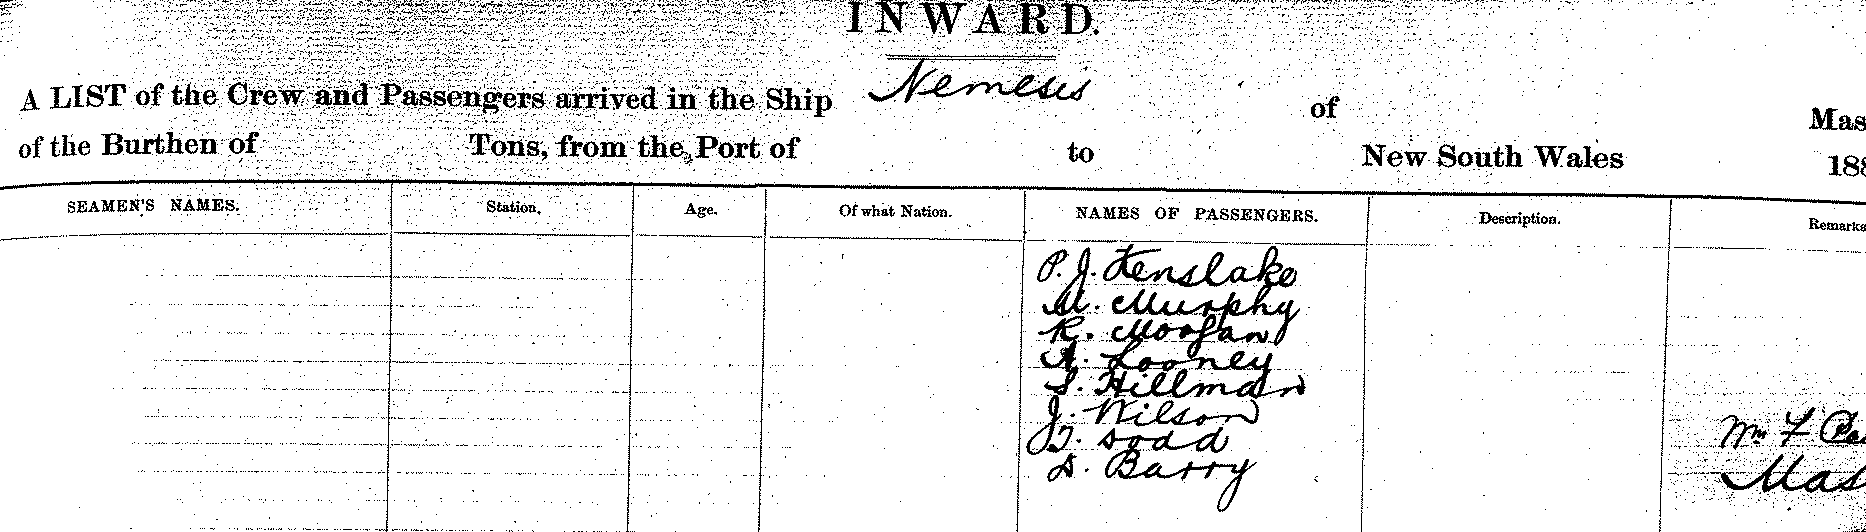 INWARD.
A LIST of the Crew and Passengers arrived in the Ship Nemesis of Mas
of the Burthen of Tons, from the Port of to New South Wales 188
SEAMEN'S NAMES. Station, Age. Of what Nation. NAMES OF PASSENGERS. Description. Remarks
P. J. Kenslake
M. Murphy
R. Morgan
A. Looney
S. Hillman
J. Wilson
T. Dodd
D. Barry
Wm F
Mas